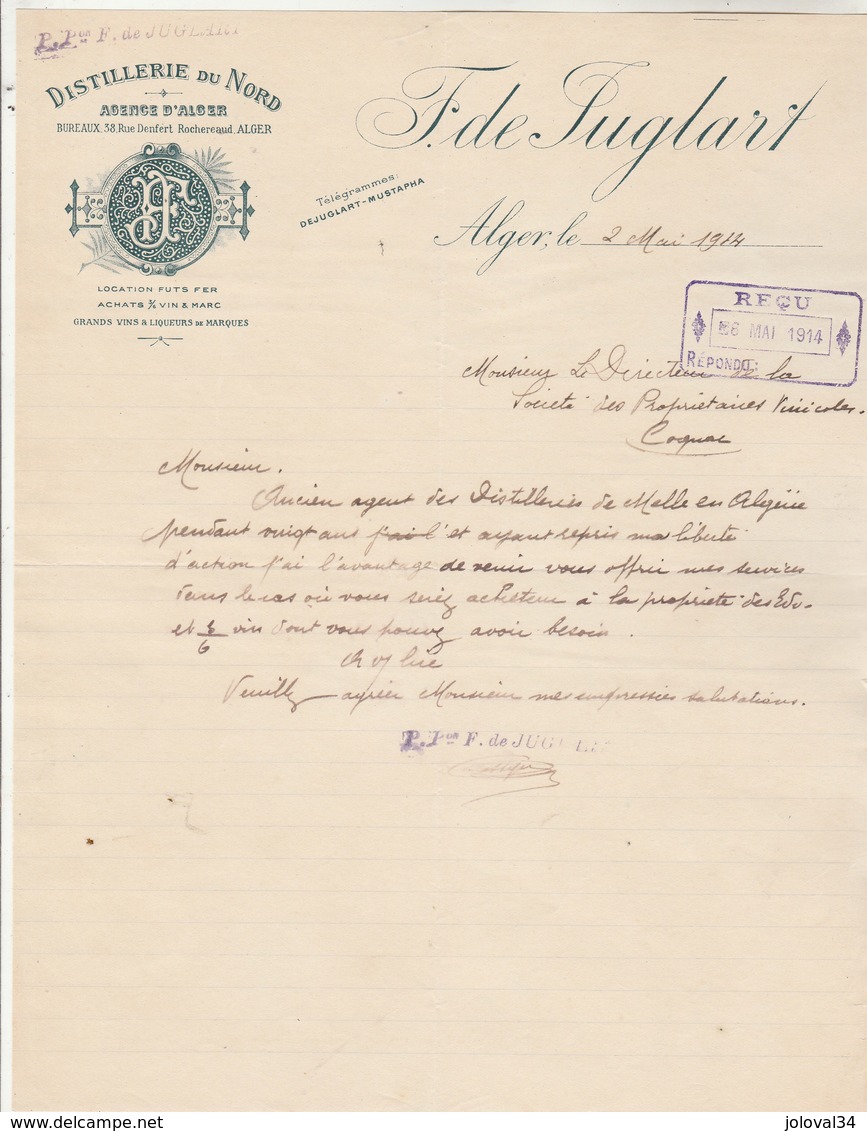 P. Pon F. de JUGLART
DISTILLERIE DU NORD
AGENCE D'ALGER
BUREAUX, 38, Rue Denfert Rochereaud, ALGER
F. de Juglart
Télégrammes:
DEJUGLART-MUSTAPHA
Alger, le 2 Mai 1914
LOCATION FUTS FER
ACHATS S/ VIN & MARC
GRANDS VINS & LIQUEURS DE MARQUES
REÇU
6 MAI 1914
RÉPONDU:
Monsieur Le Directeur de la
Société des Propriétaires Vinicoles.
Cognac
Monsieur.
Ancien agent des Distilleries de Melle en Algérie
pendant vingt ans j'ai l' et ayant repris ma liberté
d'action j'ai l'avantage de venir vous offrir mes services
dans le cas où vous seriez acheteur à la propriété des Edv.
et 3/6 vin dont vous pouvez avoir besoin.
Veuillez agréer Monsieur mes empressées salutations.
P. Pon F. de JUGLART
joloval34